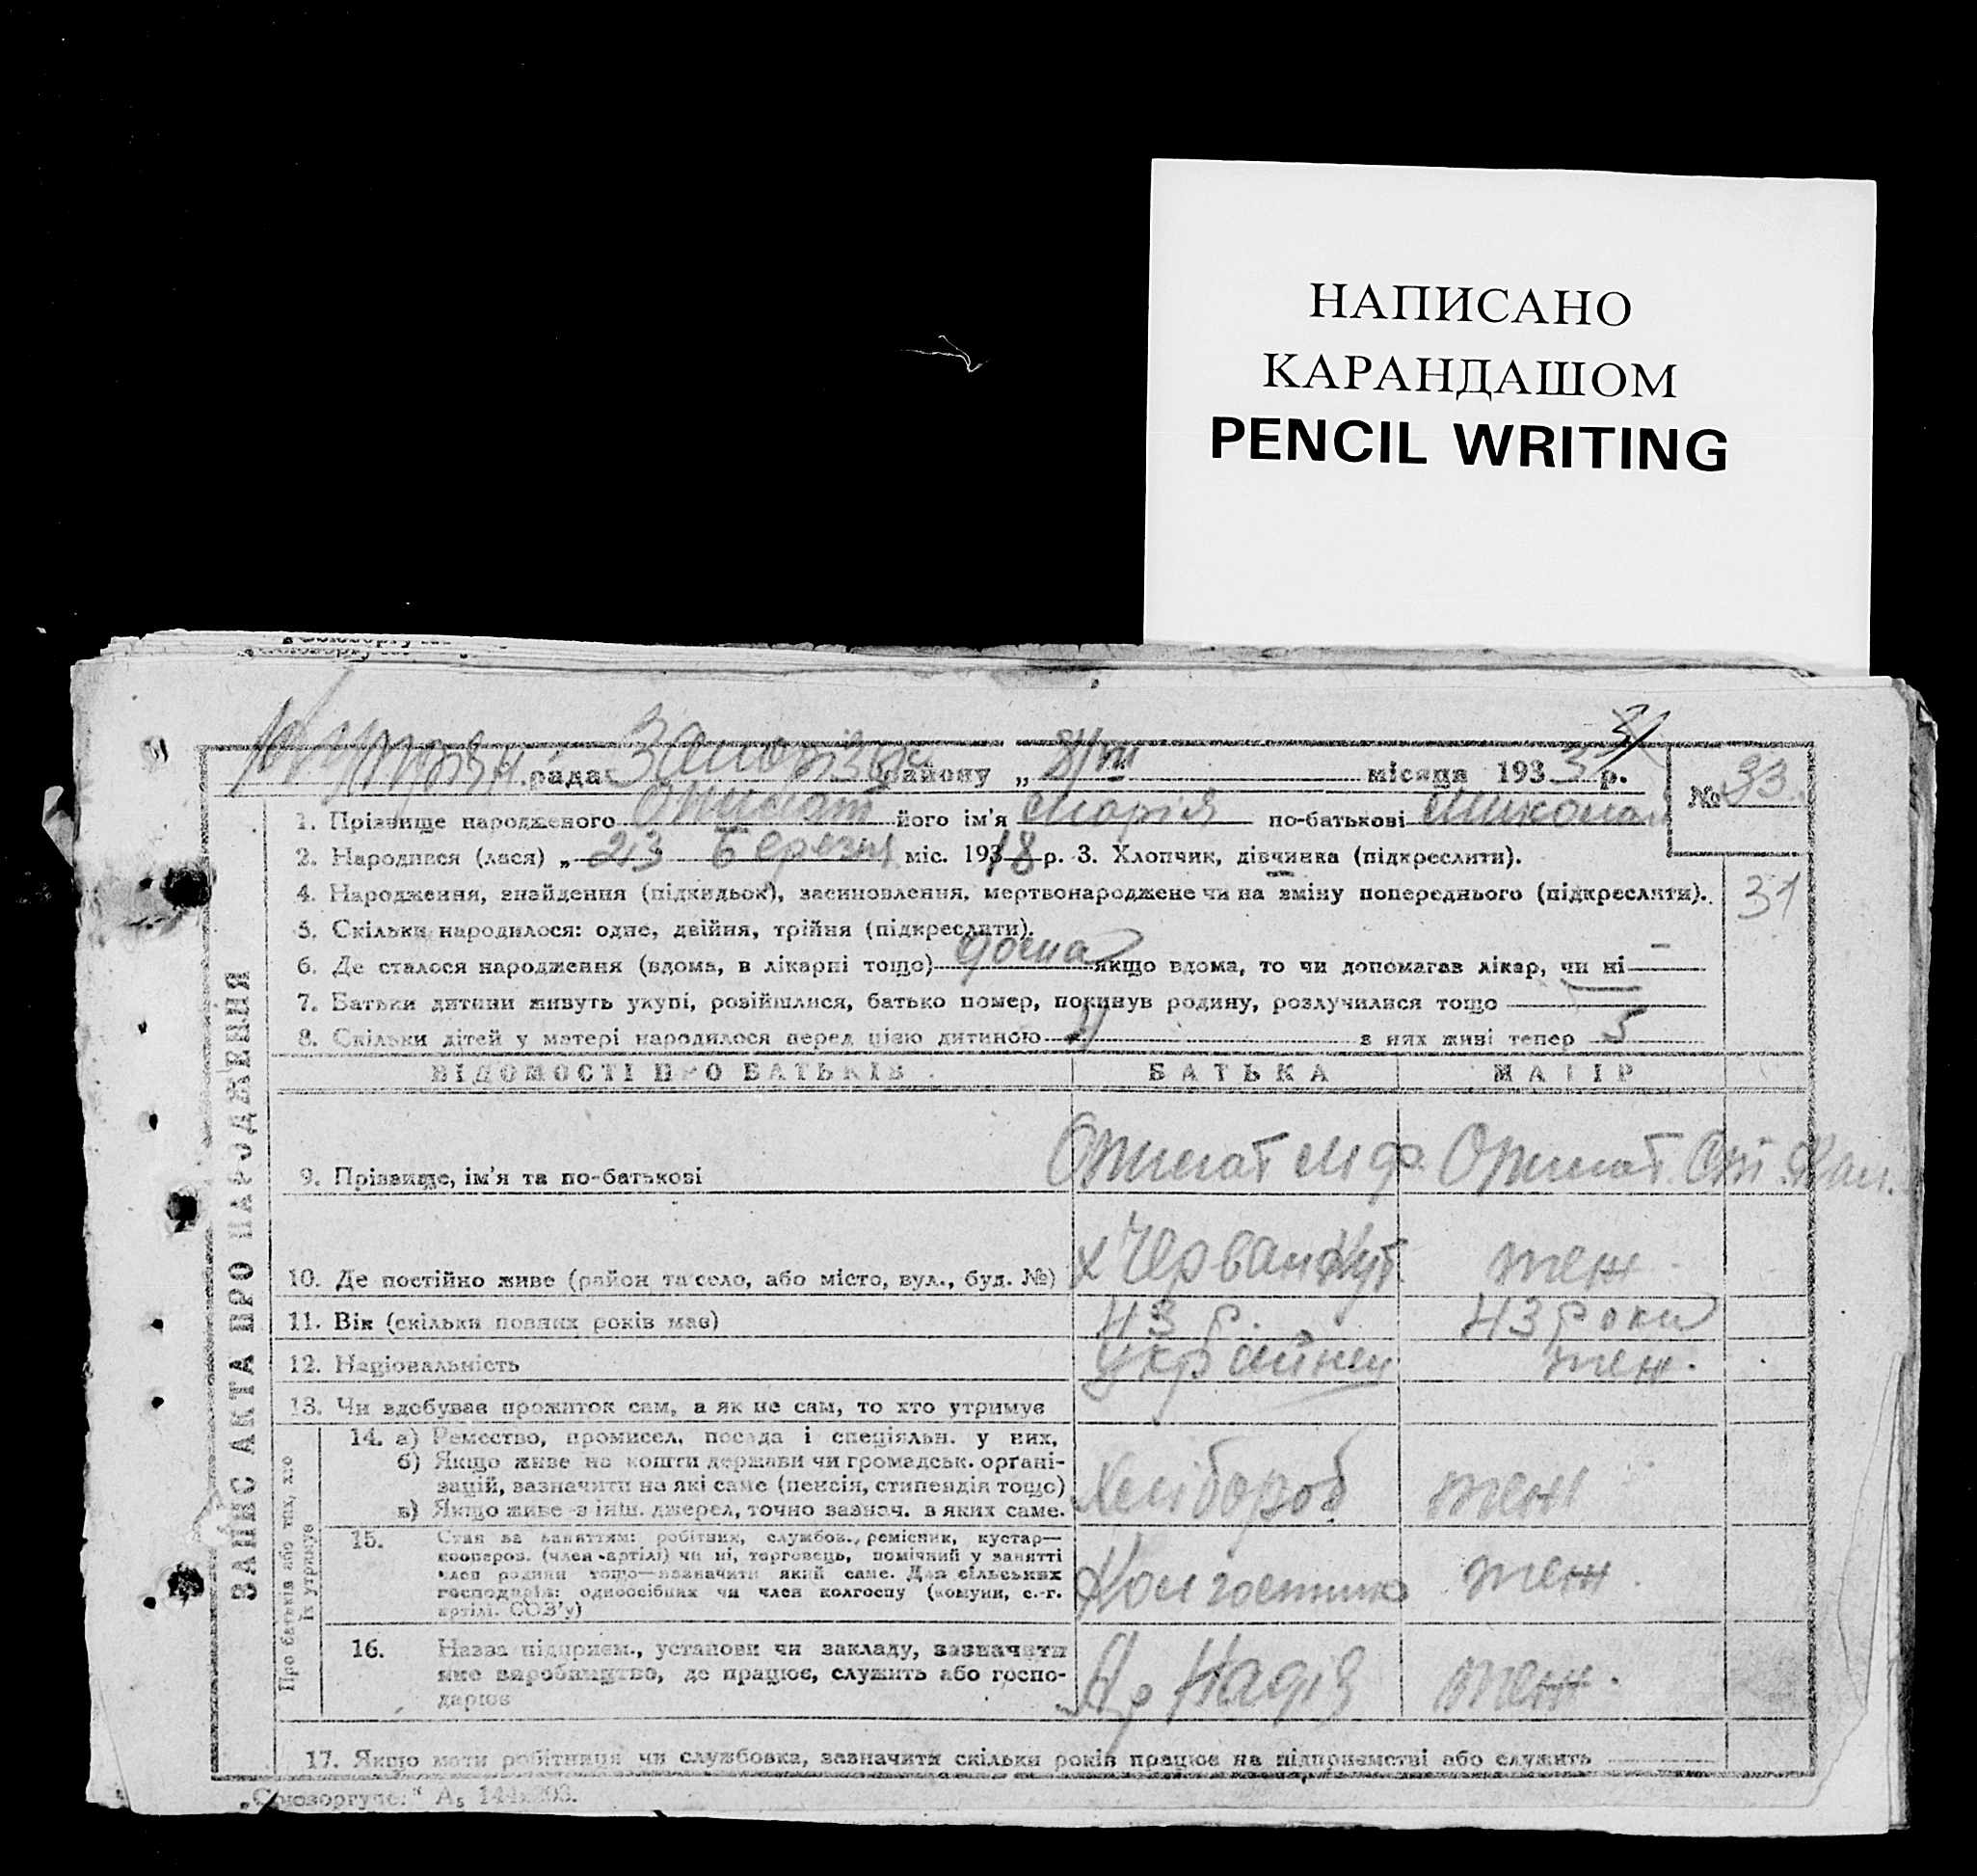 НАПИСАНО
КАРАНДАШОМ
PENCIL WRITING
рада Запорізьк району „ 31/III місяця 1933 р. № 33
1. Прізвище народженого його ім'я Марія по-батькові Микола
2. Народився (лася) „ 23 Березня міс. 1918 р. 3. Хлопчик, дівчинка (підкреслити).
4. Народження, знайдення (підкидьок), засиновлення, мертвонароджене чи на зміну попереднього (підкреслити). 31
5. Скільки народилося: одне, двійня, трійня (підкреслити).
6. Де сталося народження (вдома, в лікарні тощо) дома якщо вдома, то чи допомагав лікар, чи ні —
7. Батьки дитини живуть укупі, розійшлися, батько помер, покинув родину, розлучилися тощо
8. Скільки дітей у матері народилося перед цією дитиною з них живі тепер 5
ВІДОМОСТІ ПРО БАТЬКІВ БАТЬКА МАТІР
9. Прізвище, ім'я та по-батькові
10. Де постійно живе (район та село, або місто, вул., буд. №) х Черван Кут теж
11. Вік (скільки повних років має) 43 р. 43 роки
12. Національність Українец теж.
13. Чи здобував прожиток сам, а як не сам, то хто утримує
14. а) Ремество, промисел, посада і спеціяльн. у них,
б) Якщо живе на кошти держави чи громадськ. органі-
зацій, зазначити на які саме (пенсія, стипендія тощо)
в) Якщо живе з інш. джерел, точно зазнач. з яких саме.
Хлібороб теж
15. Стан за заняттям: робітник, службов., ремісник, кустар—
кооперов. (член артілі) чи ні, торговець, помічний у занятті
член родини тощо—зазначити який саме. Для сільських
господарів: одноосібник чи член колгоспу (комуни, с.-г.
артілі. СОЗ'у)
Колгоспник теж.
16. Назва підприєм., установи чи закладу, зазначити
яке виробництво, де працює, служить або госпо-
дарює
Надія теж.
17. Якщо мати робітниця чи службовка, зазначити скільки років працює на підприємстві або служить
ЗАПИС АКТА ПРО НАРОДЖЕННЯ
Про батьків або тих, хто
їх утримує